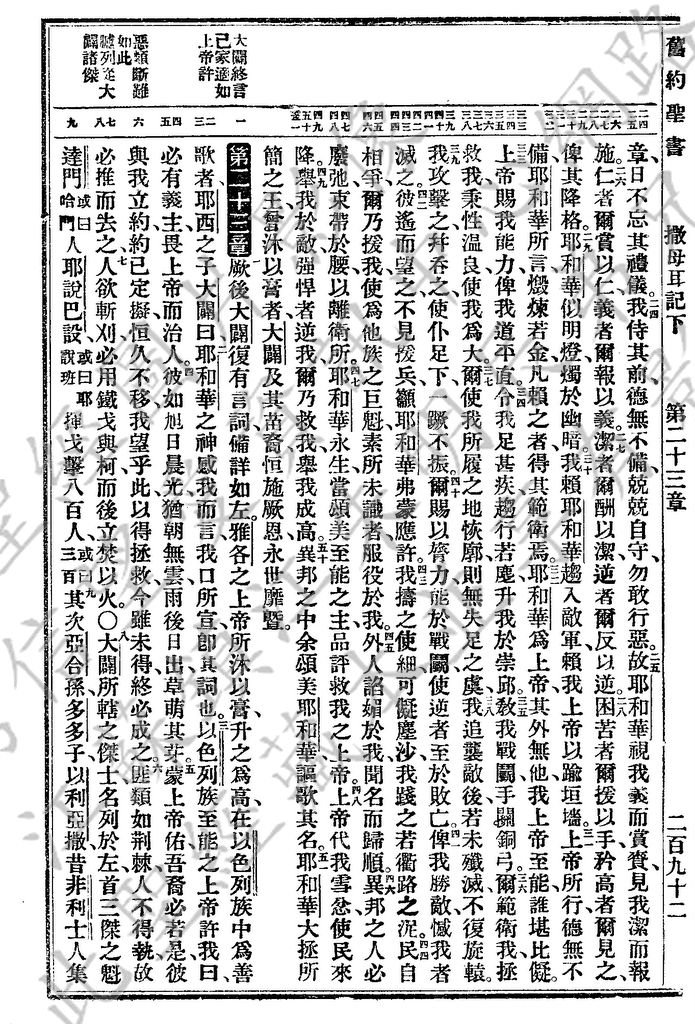 舊約聖書　撒母耳記下　第二十三章　二百九十二
章日不忘其禮儀我侍其前德無不備兢兢自守勿敢行惡故耶和華視我義而賞賚見我潔而報
施仁者爾賞以仁義者爾報以義潔者爾酬以潔逆者爾反以逆困苦者爾援以手矜高者爾見之
俾其降格耶和華似明燈燭於幽暗我賴耶和華趨入敵軍賴我上帝以踰垣墻上帝所行德無不
備耶和華所言煅煉若金凡賴之者得其範衛焉耶和華爲上帝其外無他我上帝至能誰堪比儗
上帝賜我能力俾我道平直令我足甚疾趨行若塵升我於崇邱敎我戰鬭手闢銅弓爾範衛我拯
救我秉性溫良使我爲大爾使我所履之地恢廓則無失足之虞我追襲敵後若未殲滅不復旋轅
我攻擊之幷吞之使仆足下一蹶不振爾賜以膂力能於戰鬭使逆者至於敗亡俾我勝敵憾我者
滅之彼遙而望之不見援兵籲耶和華弗蒙應許我擣之使細可儗塵沙我踐之若衢路之泥民自
相爭爾乃援我使爲他族之巨魁素所未識者服役於我外人諂媚於我聞名而歸順異邦之人必
廢弛束帶於腰以離衛所耶和華永生當頌美至能之主品評救我之上帝上帝代我雪忿使民來
降舉我於敵強悍者逆我爾乃救我舉我成高異邦之中余頌美耶和華謳歌其名耶和華大拯所
簡之王嘗沐以膏者大闢及其苗裔恒施厥恩永世靡曁
第二十三章厥後大闢復有言詞備詳如左雅各之上帝所沐以膏升之爲高在以色列族中爲善
歌者耶西之子大闢曰耶和華之神感我而言我口所宣卽其詞也以色列族至能之上帝許我曰
必有義主畏上帝而治人彼如旭日晨光猶朝無雲雨後日出草萌其芽蒙上帝佑吾裔必若是彼
與我立約約已定擬恒久不移我望乎此以得拯救今雖未得終必成之匪類如荆棘人不得執故
必推而去之人欲斬刈必用鐵戈與柯而後立焚以火〇大闢所轄之傑士名列於左首三傑之魁
達門或曰哈門人耶說巴設或曰耶說班揮戈擊八百人或曰三百其次亞合孫多多子以利亞撒昔非利士人集
大闢終言
己家適如
上帝許
惡類斷難
如此
臚列從大
闢諸傑